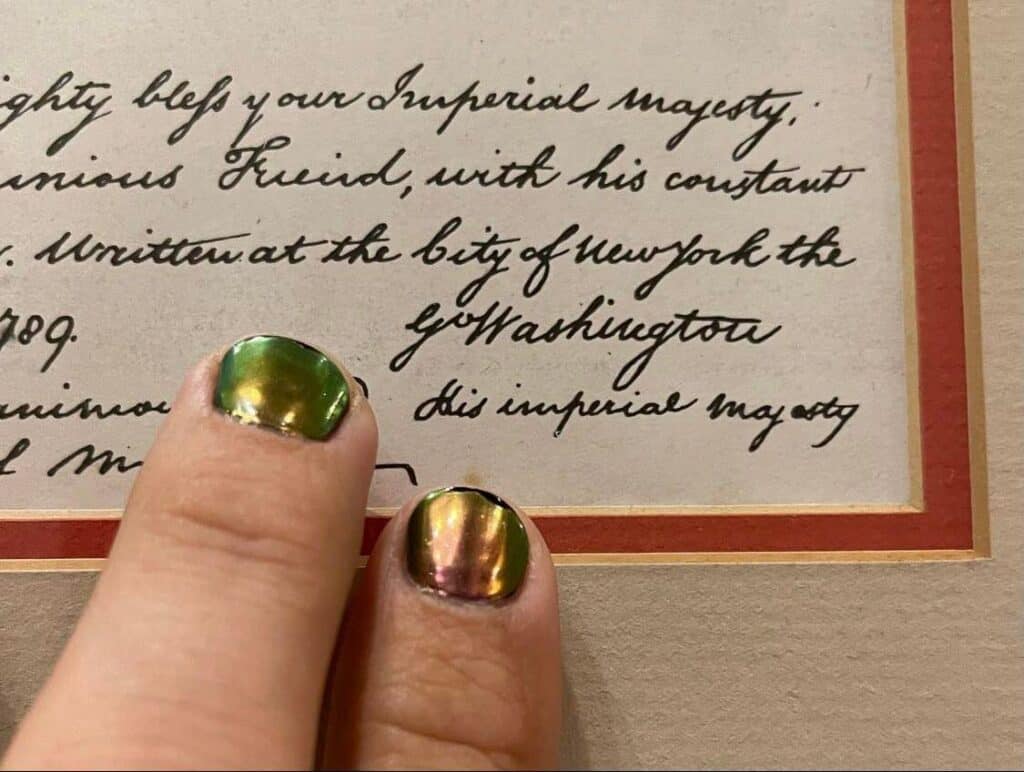 ighty bleſs your Imperial majesty,
Freind, with his constant
. Written at the City of New York the
789.
Go Washington
His imperial majesty